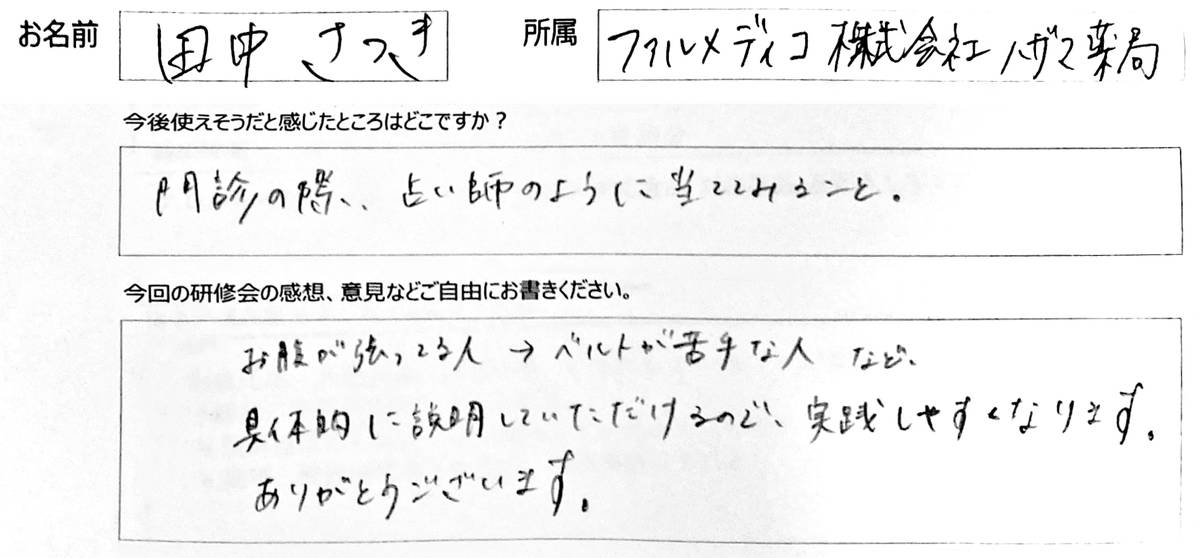 お名前 田中 さつき 所属 ファルメディコ株式会社 ハザマ薬局
今後使えそうだと感じたところはどこですか？
問診の際、占い師のように当ててみること。
今回の研修会の感想、意見などご自由にお書きください。
お腹が張ってる人 → ベルトが苦手な人 など、
具体的に説明していただけるので、実践しやすくなります。
ありがとうございます。